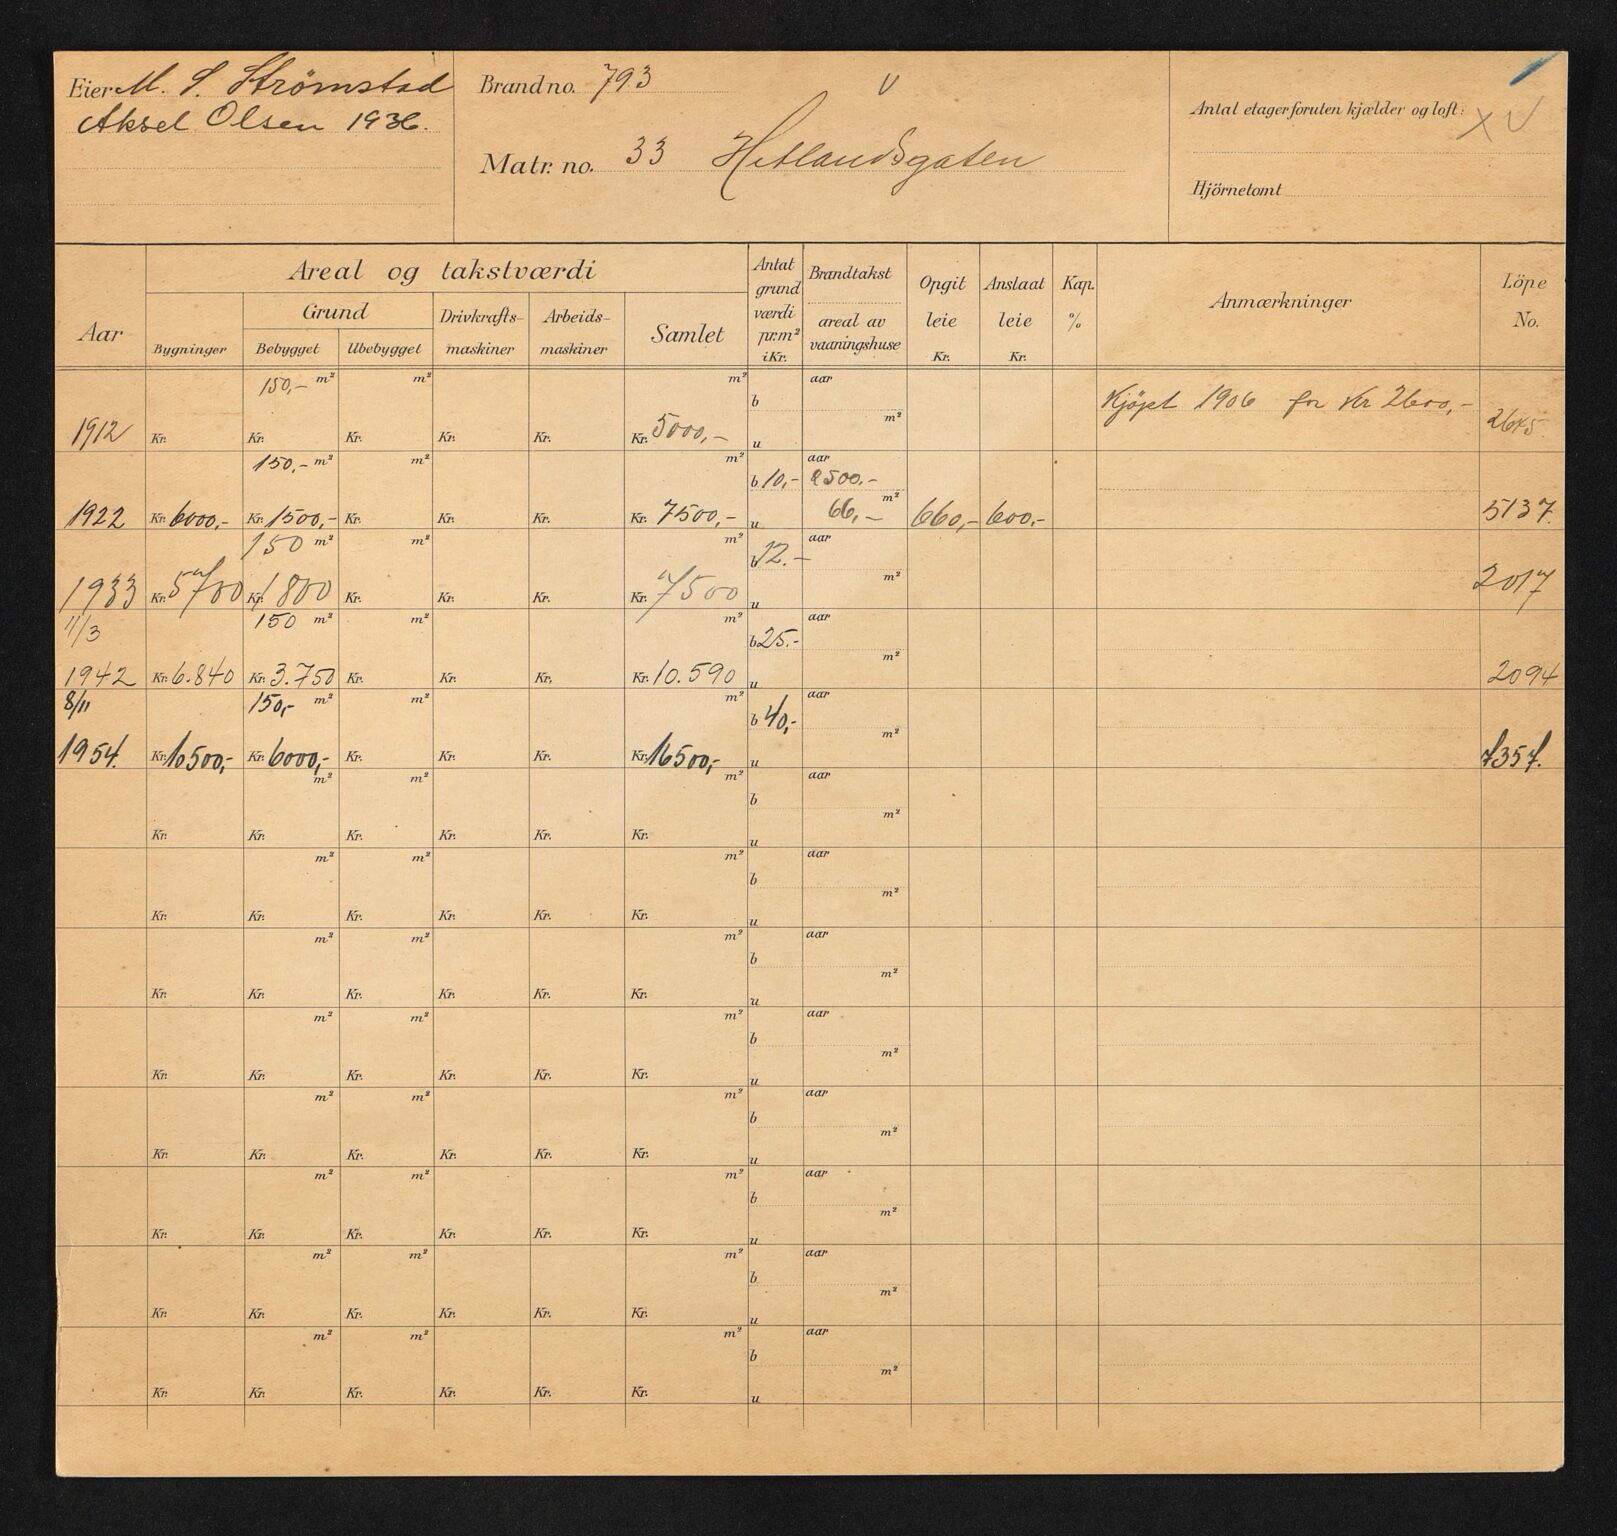 Eier M. S. Strömstad
Aksel Olsen 1936.
Brand no. 793
Matr. no. 33 Hetlandsgaten
Antal etager foruten kjælder og loft:
Hjörnetomt
Aar
Areal og takstværdi
Grund
Bygninger
Bebygget
Ubebygget
Drivkrafts-
maskiner
Arbeids-
maskiner
Samlet
Antat
grund
værdi
pr. m²
i Kr.
Brandtakst
areal av
vaaningshuse
Opgit
leie
Kr.
Anslaat
leie
Kr.
Kap.
%
Anmærkninger
Löpe
No.
150,- m² m² m² aar
b Kjöpt 1906 for Kr 2600,-
m²
1912 Kr. Kr. Kr. Kr. Kr. Kr. 5000,- u 2645
150,- m² m² m² aar
b 10,- 2500,-
m²
1922 Kr. 6000,- Kr. 1500,- Kr. Kr. Kr. Kr. 7500,- u 66,- 660,- 600,- 5137.
150 m² m² m² aar
b 12.-
m²
1933 Kr. 5700 Kr. 1800 Kr. Kr. Kr. Kr. 7500 u 2017
11/3 150 m² m² m² aar
b 25.-
m²
1942 Kr. 6.840 Kr. 3.750 Kr. Kr. Kr. Kr. 10.590 u 2094
8/11 150,- m² m² m² aar
b 40,-
m²
1954. Kr. 10500,- Kr. 6000,- Kr. Kr. Kr. Kr. 16500,- u 7357.
m² m² m² aar
b
m²
Kr. Kr. Kr. Kr. Kr. Kr. u
m² m² m² aar
b
m²
Kr. Kr. Kr. Kr. Kr. Kr. u
m² m² m² aar
b
m²
Kr. Kr. Kr. Kr. Kr. Kr. u
m² m² m² aar
b
m²
Kr. Kr. Kr. Kr. Kr. Kr. u
m² m² m² aar
b
m²
Kr. Kr. Kr. Kr. Kr. Kr. u
m² m² m² aar
b
m²
Kr. Kr. Kr. Kr. Kr. Kr. u
m² m² m² aar
b
m²
Kr. Kr. Kr. Kr. Kr. Kr. u
m² m² m² aar
b
m²
Kr. Kr. Kr. Kr. Kr. Kr. u